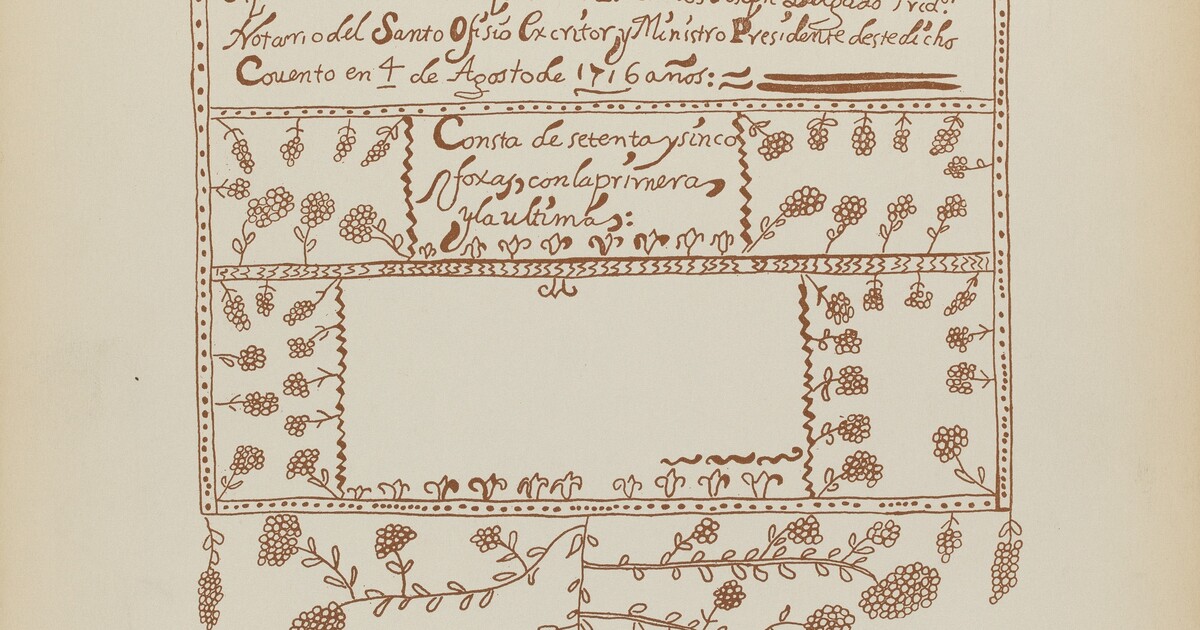 Joseph Delgado Pred.
Notario del Santo Ofisio Excritor, y Ministro Presidente deste dicho
Covento en 4 de Agosto de 1716 años:
Consta de setenta y sinco
foxas, con la primera,
y la ultima: